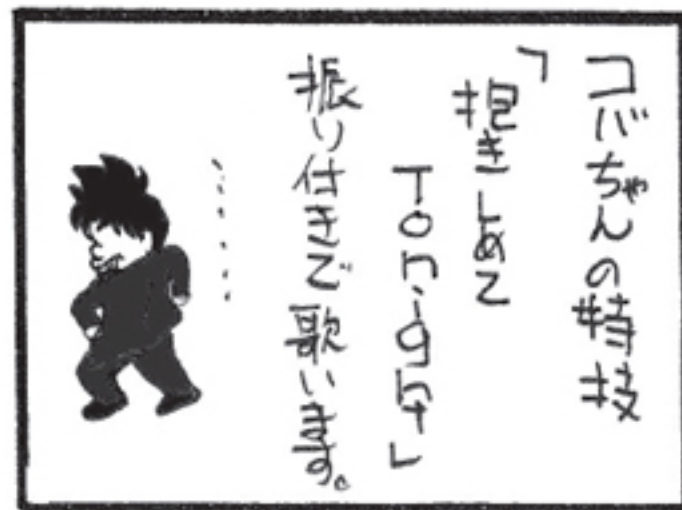 コバちゃんの特技
「抱きしめて
Tonight」
振り付きで歌います。
・・・・・・